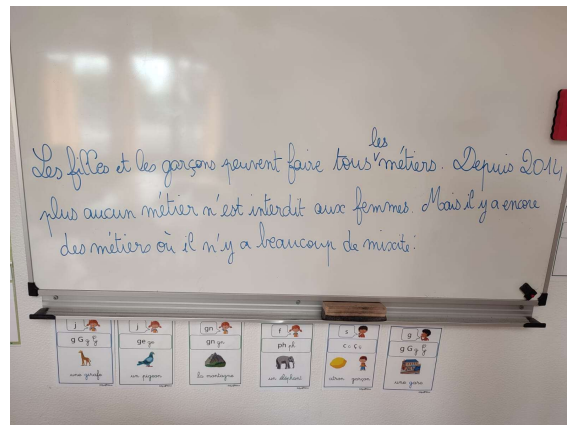 les
Les filles et les garçons peuvent faire tous métiers. Depuis 2014,
plus aucun métier n'est interdit aux femmes. Mais il y a encore
des métiers où il n'y a beaucoup de mixité.
j
j
gn
f
s
g
g G
ge
gn
ph
c ç
g G
une girafe
un pigeon
la montagne
un éléphant
citron garçon
une gare